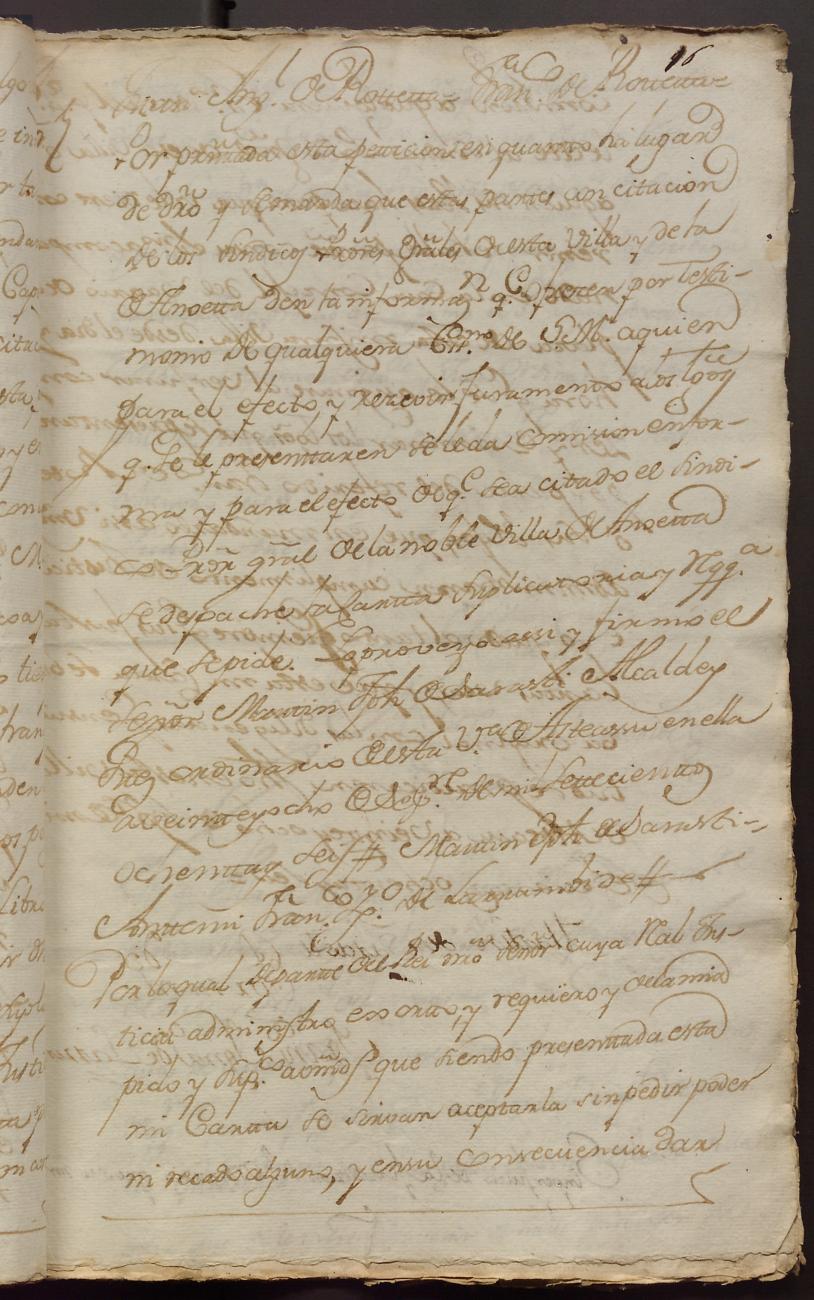 16
Ant.l de Rouetta = Fran.co de Rouetta =
Por presentada esta peticion en quanto ha lugar
de dro y se manda que estas partes con citacion
de los Sindicos Prores Grales de esta Villa y de la
de Anoetta den la informaz.n q.e ofrecen por Testi-
monio de qualquiera Ess.no de S.M. a quien
para el efecto, y recevir Juramento a los tgos
q. se le presenttaren se le da Comision en for-
ma y para el efecto de q.e sea citado el Sindi-
co Pror gral de la noble Villa de Anoetta
se despache la Cartta Suplicatoria y Rqq.a
que se pide. Lo proveyo assi y firmo el
Señor Martin Jph de Sarasti Alcalde y
Juez ordinario de esta V.a de Asteassu en ella
a veinte y ocho de Sep.re de mil settecienttos
ochentta y seis # Martin Jph de Sarasti-
Antte mi Fran.co Yg.o de Larrumbide #
Por lo qual de parte del Rei nro Señor cuya Real Jus-
ticia administro exorto, y requiero y de la mia
pido y sup.co a vmds que siendo presenttada esta
mi Cartta se sirvan aceptarla sin pedir poder
ni recado alguno, y en su consecuencia dar